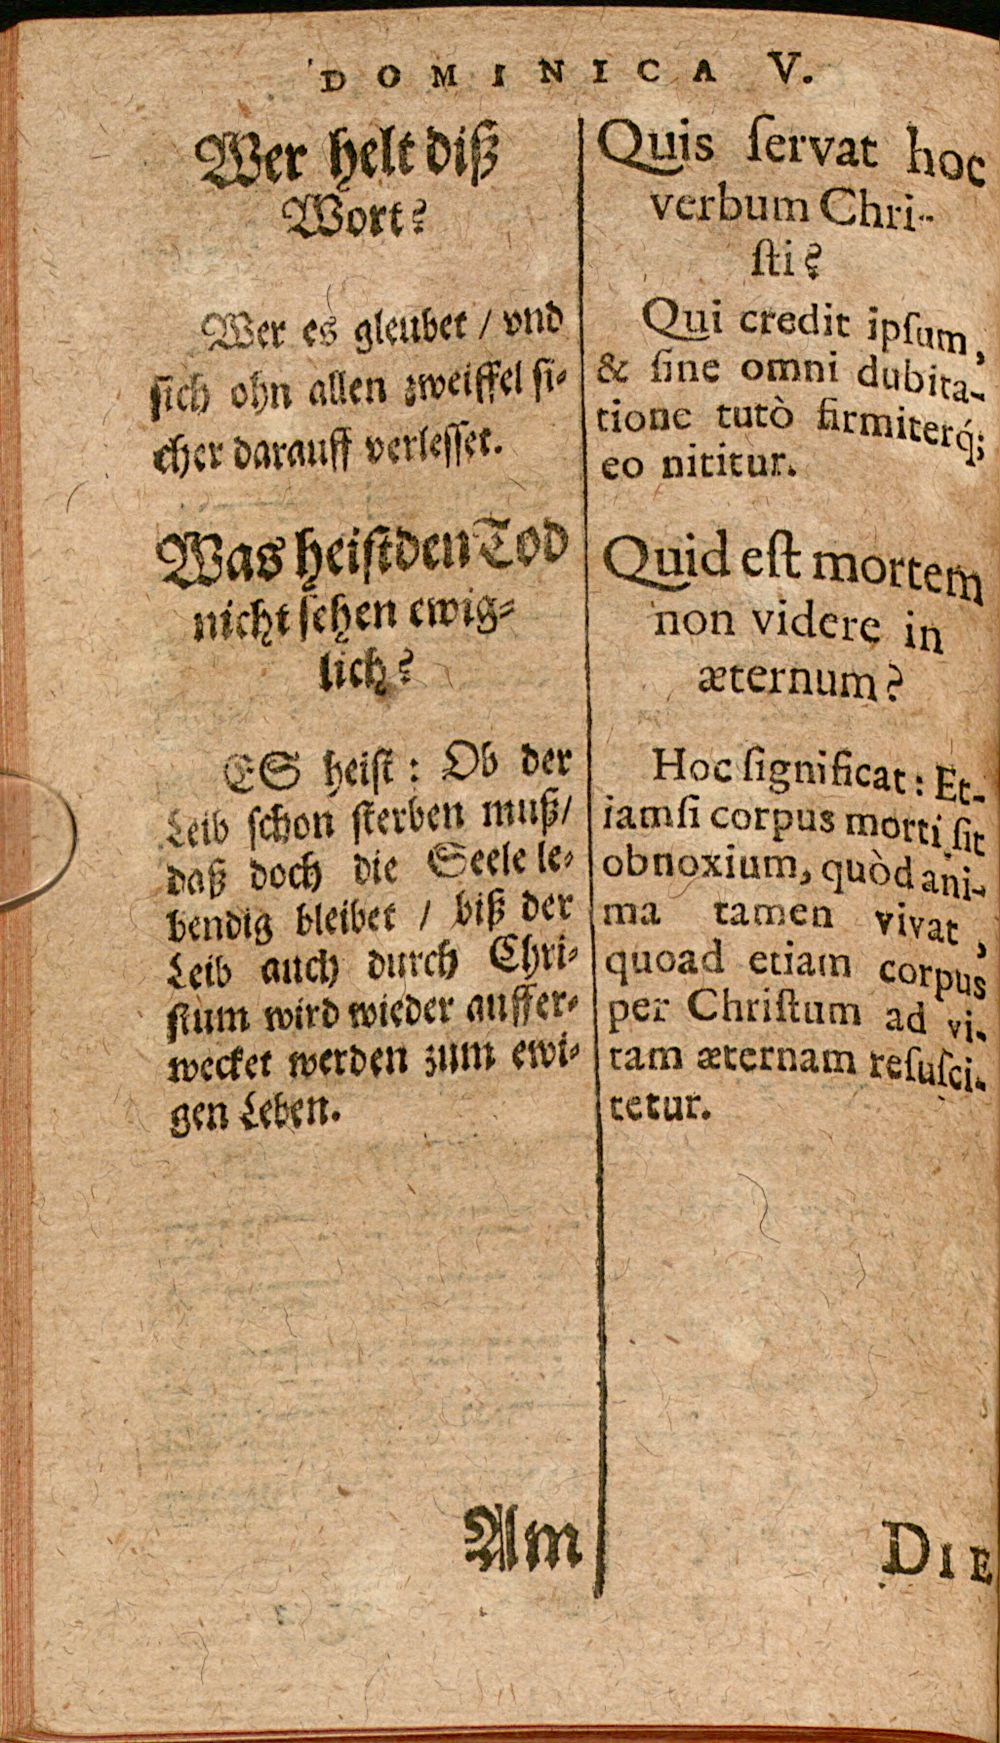 DOMINICA V.
Wer helt diß
Wort?
Wer es gleubet / vnd
sich ohn allen zweiffel si-
cher darauff verlesset.
Was heist den Tod
nicht sehen ewig-
lich?
ES heist: Ob der
Leib schon sterben muß/
daß doch die Seele le-
bendig bleibet / biß der
Leib auch durch Chri-
stum wird wieder auffer-
wecket werden zum ewi-
gen Leben.
Am
Quis ſervat hoc
verbum Chri-
ſti?
Qui credit ipſum,
& ſine omni dubita-
tione tutò firmiterq́;
eo nititur.
Quid eſt mortem
non videre in
æternum?
Hoc ſignificat: Et-
iamſi corpus morti ſit
obnoxium, quòd ani-
ma tamen vivat,
quoad etiam corpus
per Chriſtum ad vi-
tam æternam reſuſci-
tetur.
DIE